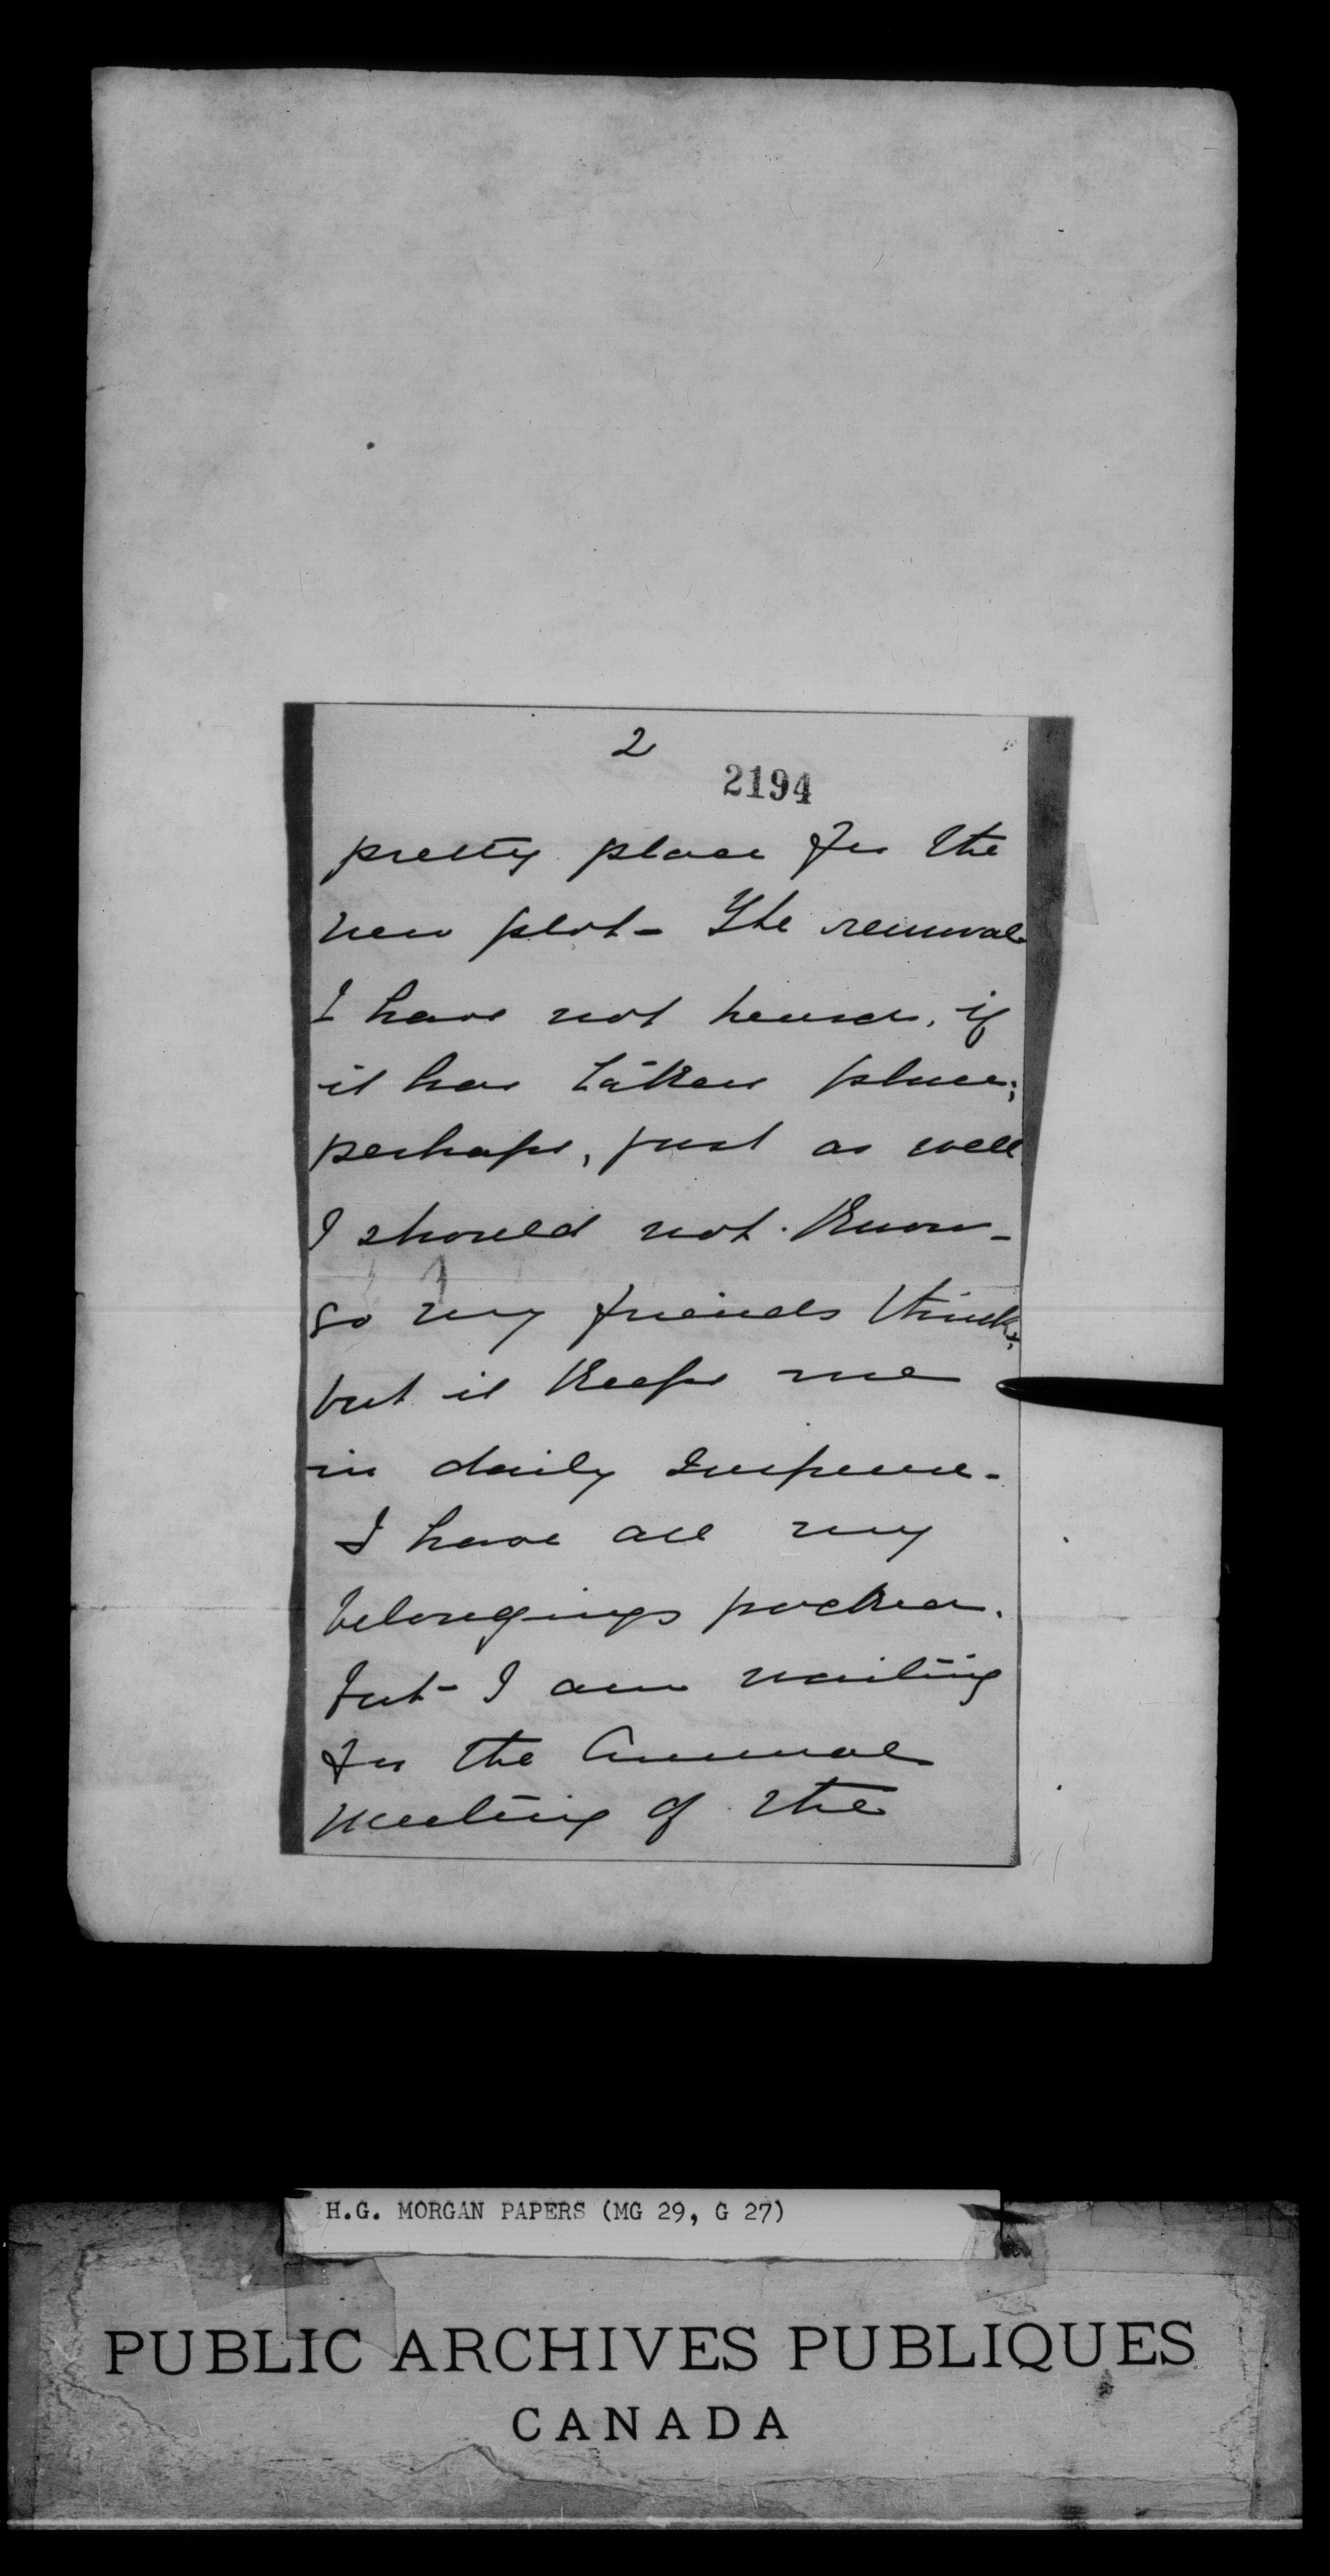 2
2194
pretty place for the
new plot - The removal
I have not heard, if
it has taken place;
perhaps, just as well
I should not know -
so my friends think,
but it keeps me
in daily suspense -
I have all my
belongings packed.
but - I am waiting
for the Annual
meeting of the
H.G. MORGAN PAPERS (MG 29, G 27)
PUBLIC ARCHIVES PUBLIQUES
CANADA